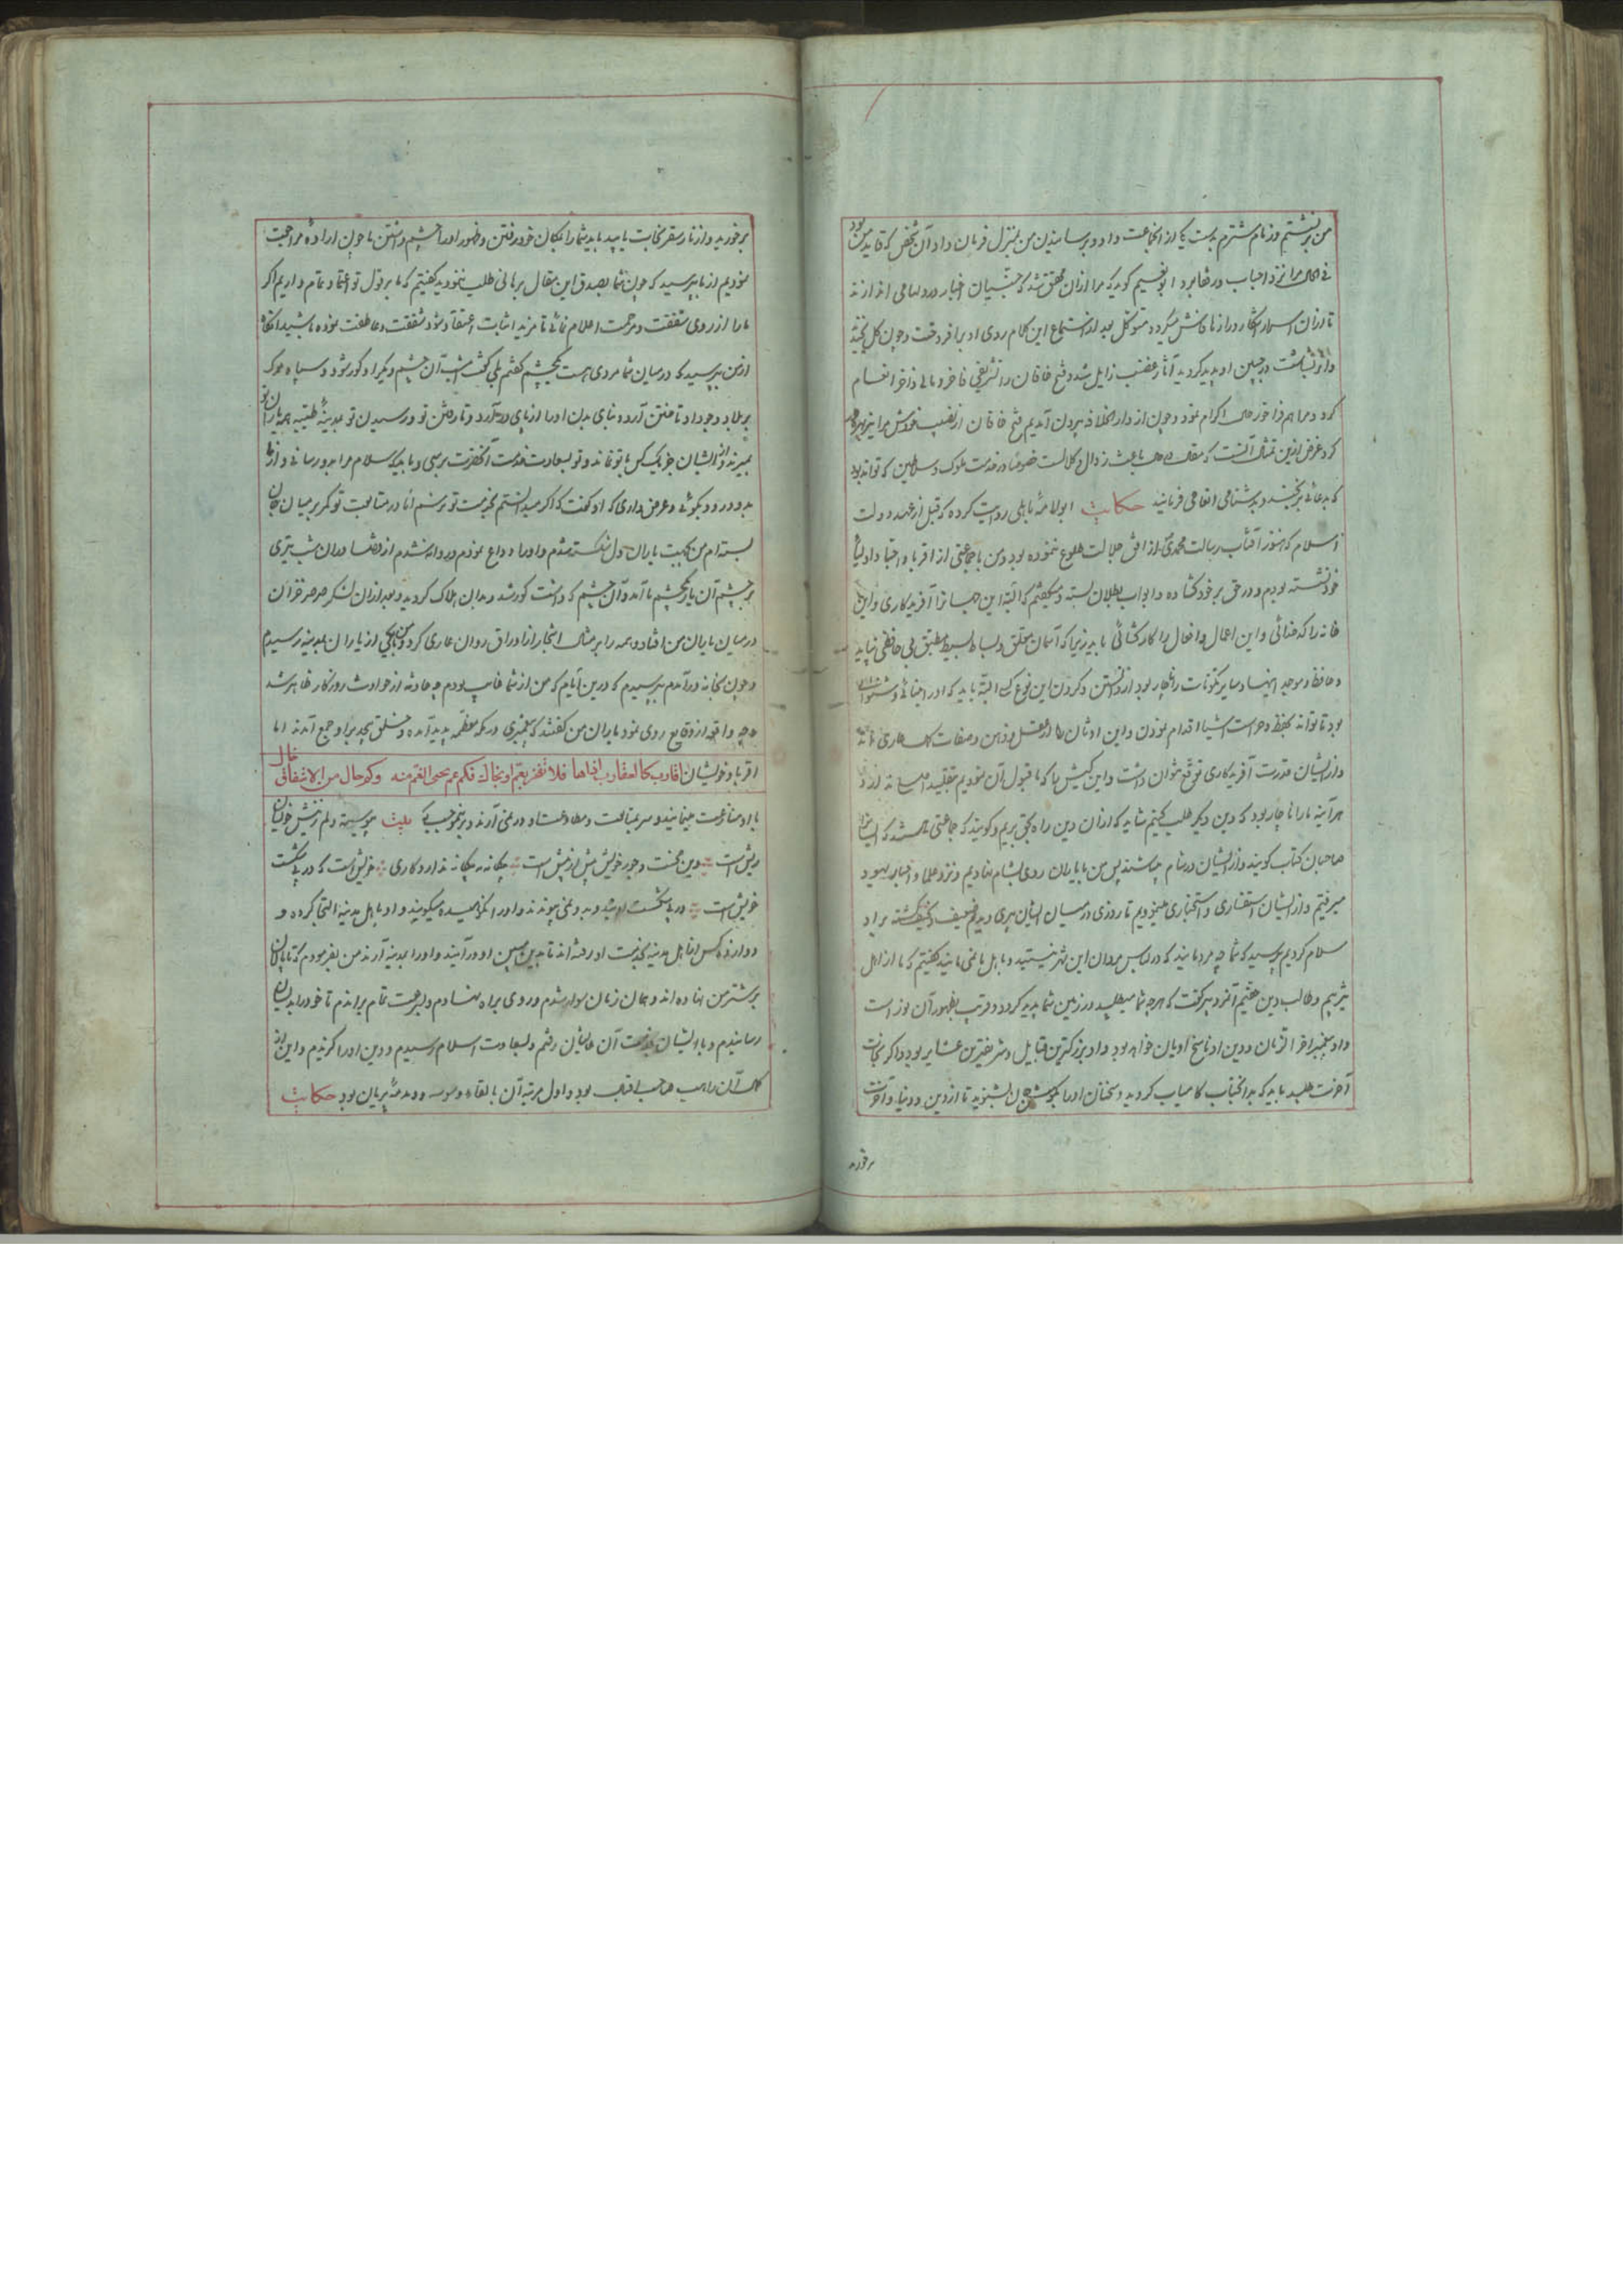 من برنشستم و زمام شترم بدست یکی از آنجماعت داد و برسانیدن من بمنزل فرمان داد آن شخص که قاید من بود
فی الحال مرا نزد احباب در رها برد ابو نعیم گوید که مرا از آن محقق شد که جنیان اخبار در دلها می اندازند
تا از زبان اسمار آشکارا در ازمان فاش میگردد متوکل بعد از استماع این کلام روی او برافروخت و چون گل بخندید
و آثار بشاشت در جبین او پدید گردید آثار غضب زایل شد و فتح خاقان را تشریفی فاخر و مالی وافر انعام
کرد و مرا هم فراخور حال اکرام نمود و چون از دار الخلافه بیرون آمدیم فتح خاقان از نصیب خودش مرا نیز بهره‌مند
کرد و غرض ازین تمثال آنست که باعث زوال و کلالت خصوصا در خدمت ملوک و سلاطین که تواند بود
که بدعائی برنجند و بدشنامی انعامی فرمایند حکایت ابو لامه باهلی روایت کرده که قبل از عهد دولت
اسلام که هنوز آفتاب رسالت محمدی از افق جلالت طلوع ننموده بود من با جماعتی از اقربا و احبا و اولیا
خود نشسته بودم و در حق بر خود گشاده و ابواب بطلان بسته و میگفتیم که البته این جهان را آفریدگاری و این
خانه را کدخدائی و این اعمال و افعال را کارکشائی باید زیرا که آسمان معلق و بساط بسیط مطبق بی حافظی نپاید
و حافظ و موجد اینها و سایر مکونات را ناچار بود از دانستن و کردن این نوع کس البته باید که او را بینائی و شنوائی
بود تا تواند بحفظ و حراست اشیا اقدام نمودن و این اوثان ما از عقل و ذهن و صفات کمال عاری مانده
و از ایشان قدرت آفریدگاری توقع نتوان داشت و این کیش ما که ما قبول آن نمودیم بتقلید
هرآینه ما را ناچار بود که دین دیگر طلب کنیم شاید که از آن دین راه بحق بریم و گویند که جماعتی هستند که ایشانرا
صاحبان کتاب گویند و از ایشان در شام میباشند پس من با یاران روی بشام نهادیم و نزد علما و احبار یهود
میرفتیم و از ایشان استفساری و استخباری مینمودیم تا روزی در میان ایشان پیری دیدم ضعیف و شکسته بر او
سلام کردیم پرسید که شما چه مردمانید که در لباس مردان این شهر نیستید و باهل ما نمی مانید گفتیم که ما از اهل
یثربیم و طالب دین حقیم آنمرد پیر گفت که هرچه شما میطلبید در زمین شما پدید گردد و قریب بظهور آن نور است
و او پیغمبر آخر الزمان و دین او ناسخ ادیان خواهد بود و او بزرگترین قبایل و شریفترین عشایر بود و اگر نجات
آخرت طلبید باید که بدانجناب کامیاب گردید و سخنان او را بگوش جان بشنوید تا از دین و دنیا و آخرت
برخورید
برخورید و از نار سقر نجابت یابید باید شما را بمکان خود رفتن و ظهور او را چشم داشتن ما چون اراده مراجعت
نمودیم از ما پرسید که چون شما بصدق این مقال برهانی طلب ننمودید گفتیم که ما بر قول تو اعتماد تمام داریم اگر
ما را از روی شفقت و مرحمت اعلام فرمائی تا مزید اثبات اعتقاد شود شفقت و عاطفت نموده باشید آنگاه
از من پرسید که در میان شما مردی هست یکچشم گفتم بلی گفت امشب آن چشم دیگر او کور شود و سپاه مرگ
بر بلاد وجود او تاختن آرد و بنای بدن او را از پای درآرد و تا رفتن تو و رسیدن تو بمدینه طیبه همه یاران تو
بمیرند و از ایشان جز یک کس با تو نماند و تو بسعادت خدمت آنحضرت برسی و باید که سلام مرا بدو رسانی و از ما
بدو درود بگوئی و عرض داری که او گفت که اگر میدانستم بخدمت تو برسم آنا در متابعت تو کمر بر میان جان
بسته ام من بجهت یاران دل شکسته شدم و او را وداع نمودم و روانه شدم از قضا در آن شب تیری
بر چشم آن یار یکچشم ما آمد و آن چشم که داشت کور شد و بدان هلاک گردید و بعد از آن لشکر صرصر خزان
در میان یاران من افتاد و همه را بر مثال اشجار از اوراق روان عاری کرد و من با یکی از یاران بمدینه رسیدم
و چون بخانه درآمدم پرسیدم که درین ایام که من از شما غایب بودم چه حادثه از حوادث روزگار ظاهر شد
و چه واقعه از وقایع روی نمود یاران من گفتند که پیغمبری در مکه معظمه پدید آمده و خلق بیحد بر او جمع آمدند اما
اقربا و خویشان اقارب کالعقارب فی اذاها فلا تفخر بعم او بخال فکم عم یجی الغم منه وکم خال من الاشفاق خال
با او منازعت مینمایند و سر بمتابعت و مطاوعت او در نمی آرند و بر نمی‌خسبند بیت پیوسته دلم ز نیش خویشان
ریش است وین محنت و جور خویش بیش از پیش است بیگانه به بیگانه ندارد کاری خویش است که در پی شکست
خویش است در پی شکست اویند و بدو نمی پیوندند و او را نکوهیده میگویند و او باهل مدینه التجا کرده و
دوازده کس از اهل مدینه بخدمت او رفته اند تا بدین مبین او درآیند و او را بمدینه آرند من بفرمودم که تا پالان
بر شتر من نهاده اند و همان زمان سوار شدم و روی براه نهادم و بسرعت تمام براندم تا خود را بدیشان
رسانیدم و با ایشان بخدمت آن عالیشان رفتم و بسعادت اسلام رسیدم و دین او را گزیدم و این از
کمال آن راهب صاحب بود و اول مرتبه آن بالقاء وسوسه و دمدمهٔ پریان بود حکایت